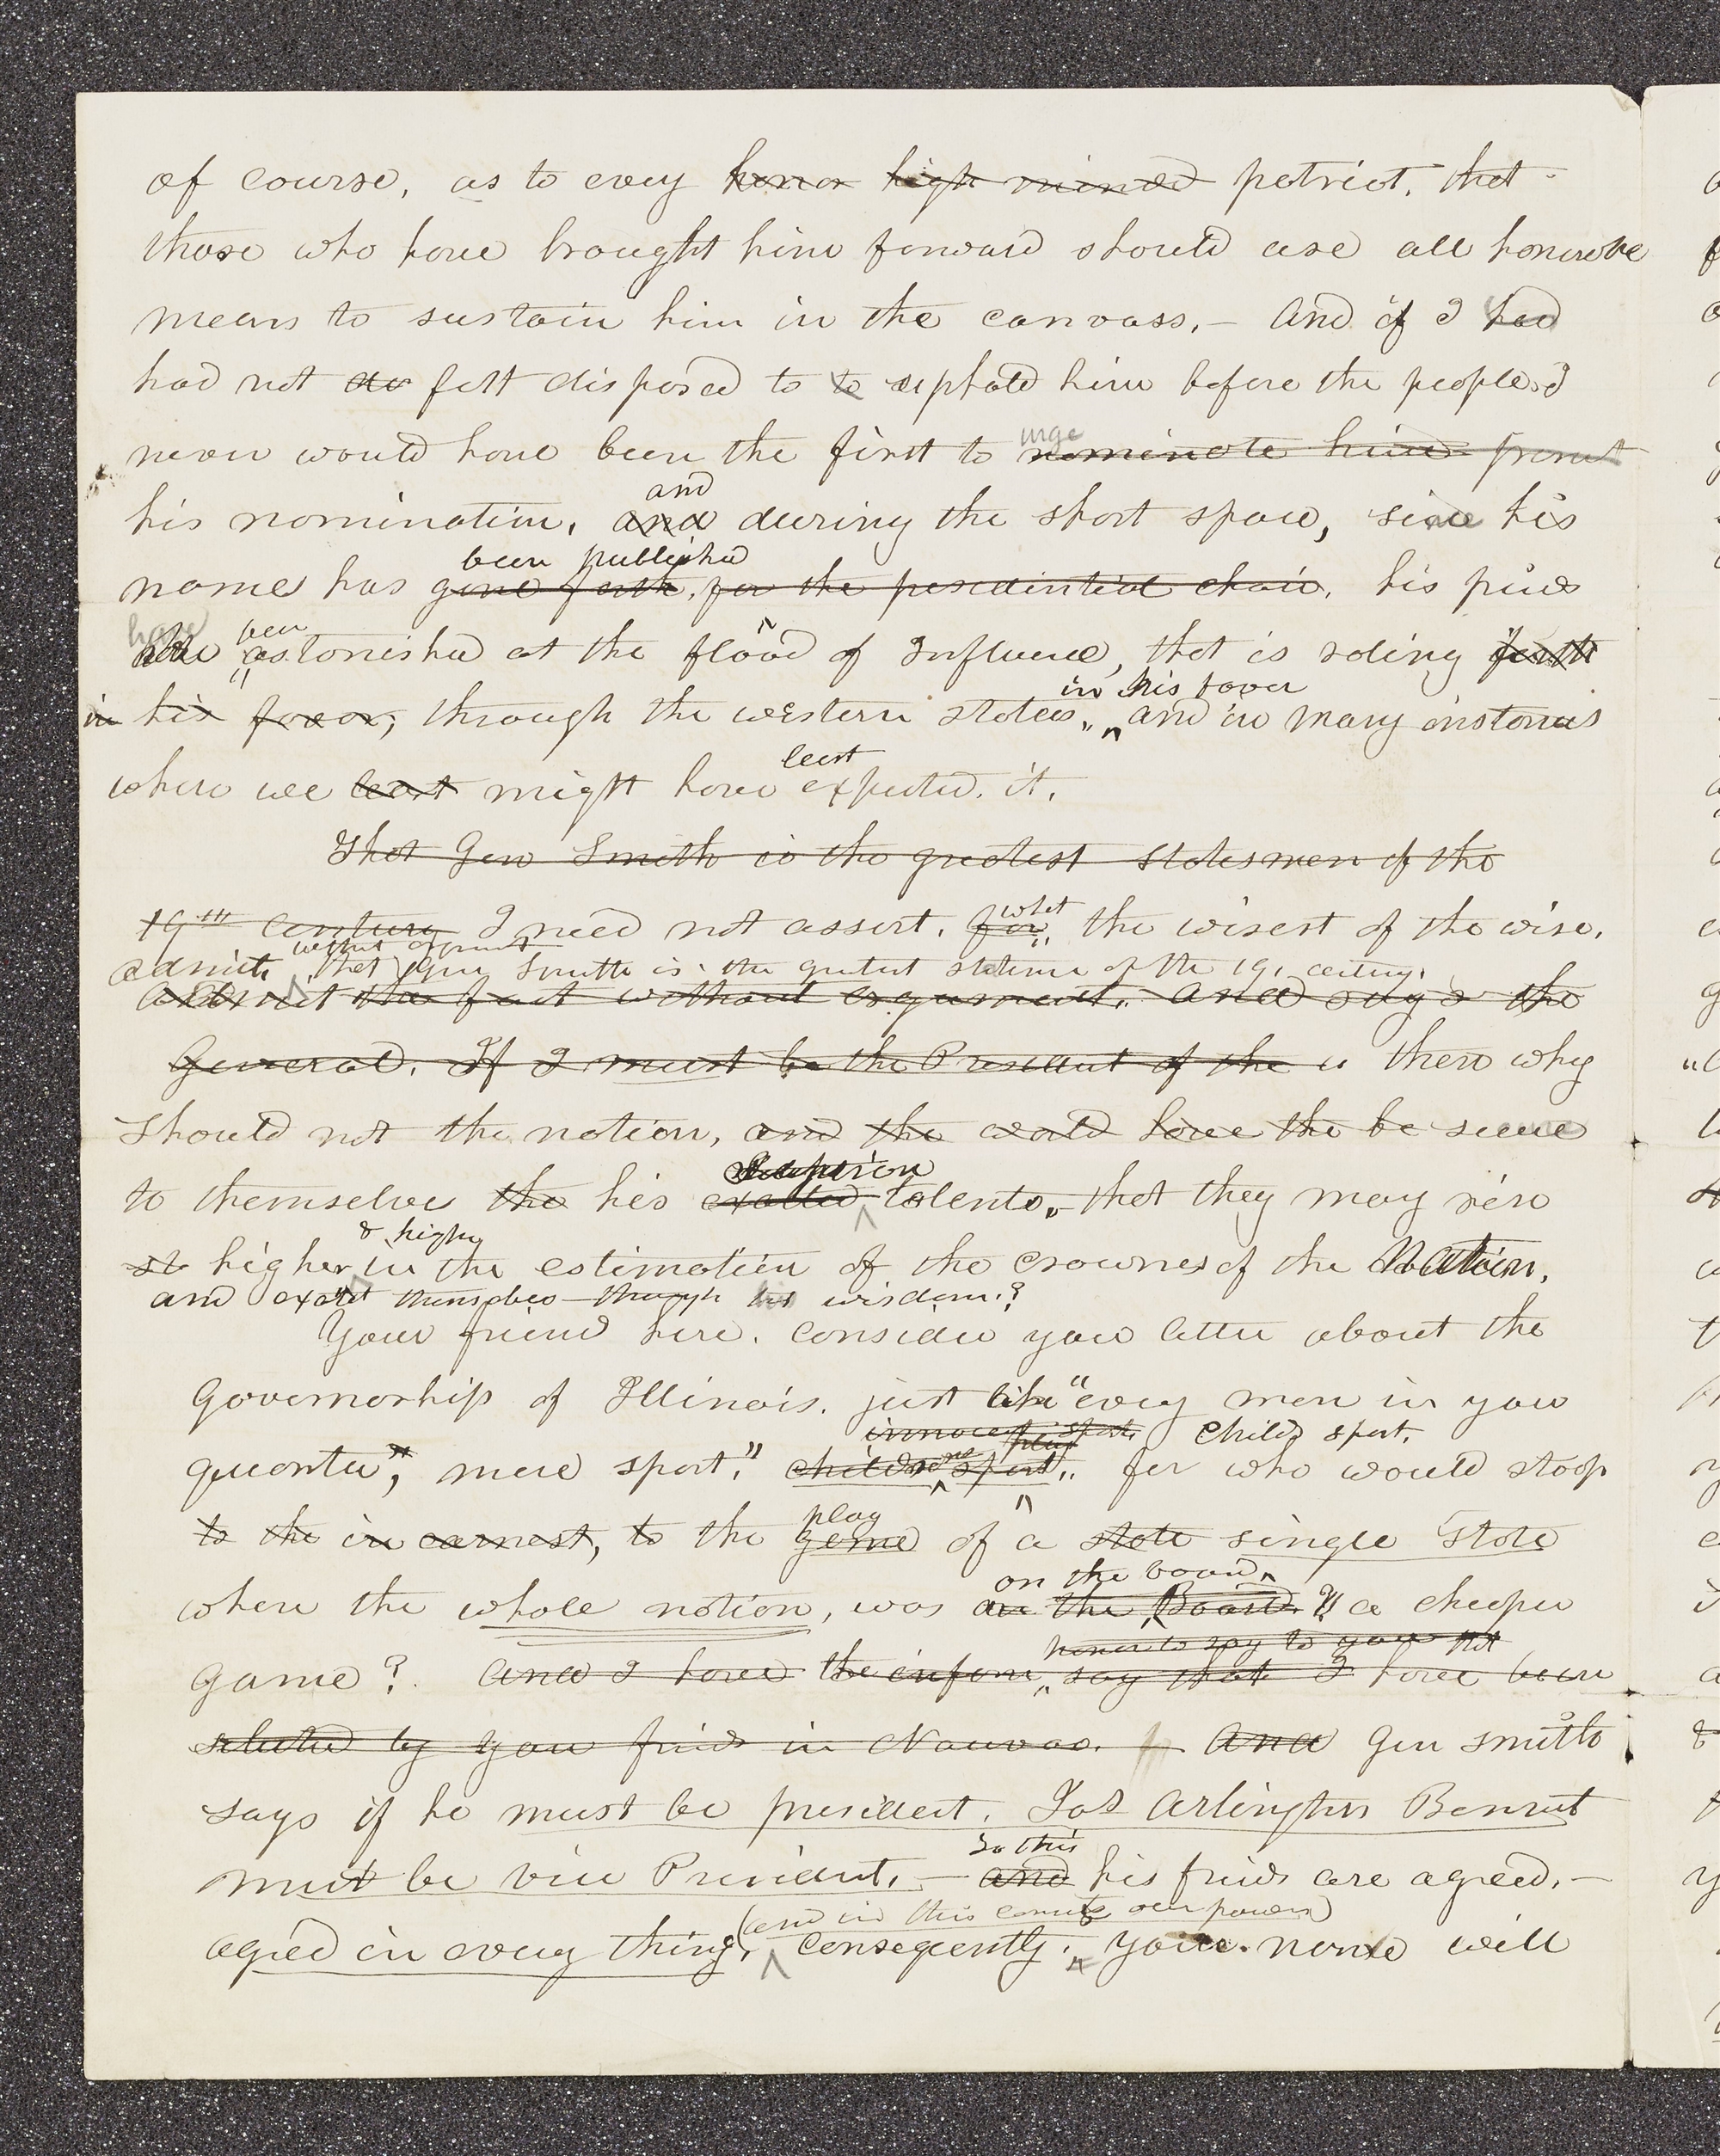 of course, as to evey honor high minded patriot. that
those who have brought him forward should use all honorable
means to sustain him in the canvass,- And if I had
had not felt disposed to to uphold him before the people. I
urge
never would have been the first to nominate him present
and
his nomination, and during the short space, since his
been published
name has gone forth, for the presidential chair, his friends
have been
astonished at the flood of Influence, that is roling forth
in his favor
in his favor, through the western states, and in many instances
least
where we least might have expected. it.
That Gen Smith is the greatest statesman of the
what
19th Century I need not assert. for the wisest of the wise,
without argument
admit that Gen Smith is the greatest statesman of the 19. century.
Admit the fact without argument. And says the
General. If I must be the President of the is then why
should not the nation, and the world have the be secure
Superior
to themselves the his exalted talents, that they may rise
& higher
higher in the estimation of the crownes of the Nation.
and exalt themselves through his wisdom.?
Your friend here. consider your letter about the
Governorship of Illinois. just like "evey man in your
innocent sport, Childs sport.
play
quarter", mere sport," childs sport, for who would stoop
play
to the in earnest, to the game of a state single State
on the board
where the whole nation, was on the Board? a cheeper
honor to say to you that
game? And I have the inform, say that I have been
selected by your friends in Nauvoo. And Gen Smith
says if he must be president. Jas Arlington Bennet
So this
must be vice President,- and his friends are agreed,-
(and in this comits our powers)
agreed in every thing, consequently. your name will